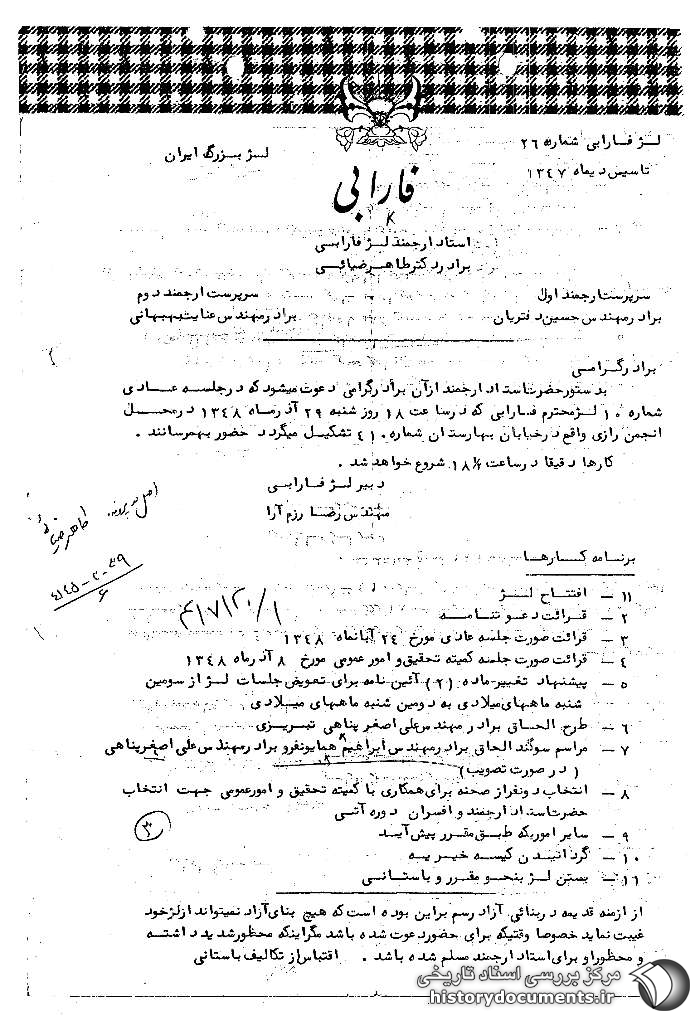 لژ فارابی شماره ۲۶
تاسیس دیماه ۱۳۴۷
لژ بزرگ ایران
فارابی
استاد ارجمند لژ فارابی
برادر دکتر طاهر ضیائی
سرپرست ارجمند اول
سرپرست ارجمند دوم
برادر مهندس حسین دفتریان
برادر مهندس عنایت بهبهانی
برادر گرامی
بدستور حضرت استاد ارجمند از آن برادر گرامی دعوت میشود که در جلسه عادی
شماره ۱۰ لژ محترم فارابی که در ساعت ۱۸ روز شنبه ۲۹ آذرماه ۱۳۴۸ در محل
انجمن رازی واقع در خیابان بهارستان شماره ۴۱۰ تشکیل میگردد حضور بهمرسانند .
کارها دقیقا در ساعت ۱۸/۴ شروع خواهد شد .
دبیر لژ فارابی
مهندس رضا رزم آرا
اصل در پرونده طاهر ضیائی
برنامه کارها
۱۱ - افتتاح لژ
۲ - قرائت دعوتنامه
۳ - قرائت صورت جلسه عادی مورخ ۲۴ آبانماه ۱۳۴۸
۴ - قرائت صورت جلسه کمیته تحقیق و امور عمومی مورخ ۸ آذرماه ۱۳۴۸
۵ - پیشنهاد تغییر ماده (۲) آئین نامه برای تعویض جلسات لژ از سومین
شنبه ماههای میلادی به دومین شنبه ماههای میلادی
۶ - طرح الحاق برادر مهندس علی اصغر پناهی تبریزی
۷ - مراسم سوگند الحاق برادر مهندس ابراهیم همایونفر و برادر مهندس علی اصغر پناهی
( در صورت تصویب )
۸ - انتخاب دو نفر از صحنه برای همکاری با کمیته تحقیق و امور عمومی جهت انتخاب
حضرت استاد ارجمند و افسران دوره آتی
۹ - سایر اموریکه طبق مقرر پیش آید
۱۰ - گردانیدن کیسه خیریه
۱۱ - بستن لژ بنحو مقرر و باستانی
۳
از ازمنه قدیمه در بنائی آزاد رسم براین بوده است که هیچ بنای آزاد نمیتواند از لژ خود
غیبت نماید خصوصا وقتیکه برای حضور دعوت شده باشد مگر اینکه محظور شدید داشته
و محظور او برای استاد ارجمند مسلم شده باشد . اقتباس از تکالیف باستانی
مرکز بررسی اسناد تاریخی
historydocuments.ir